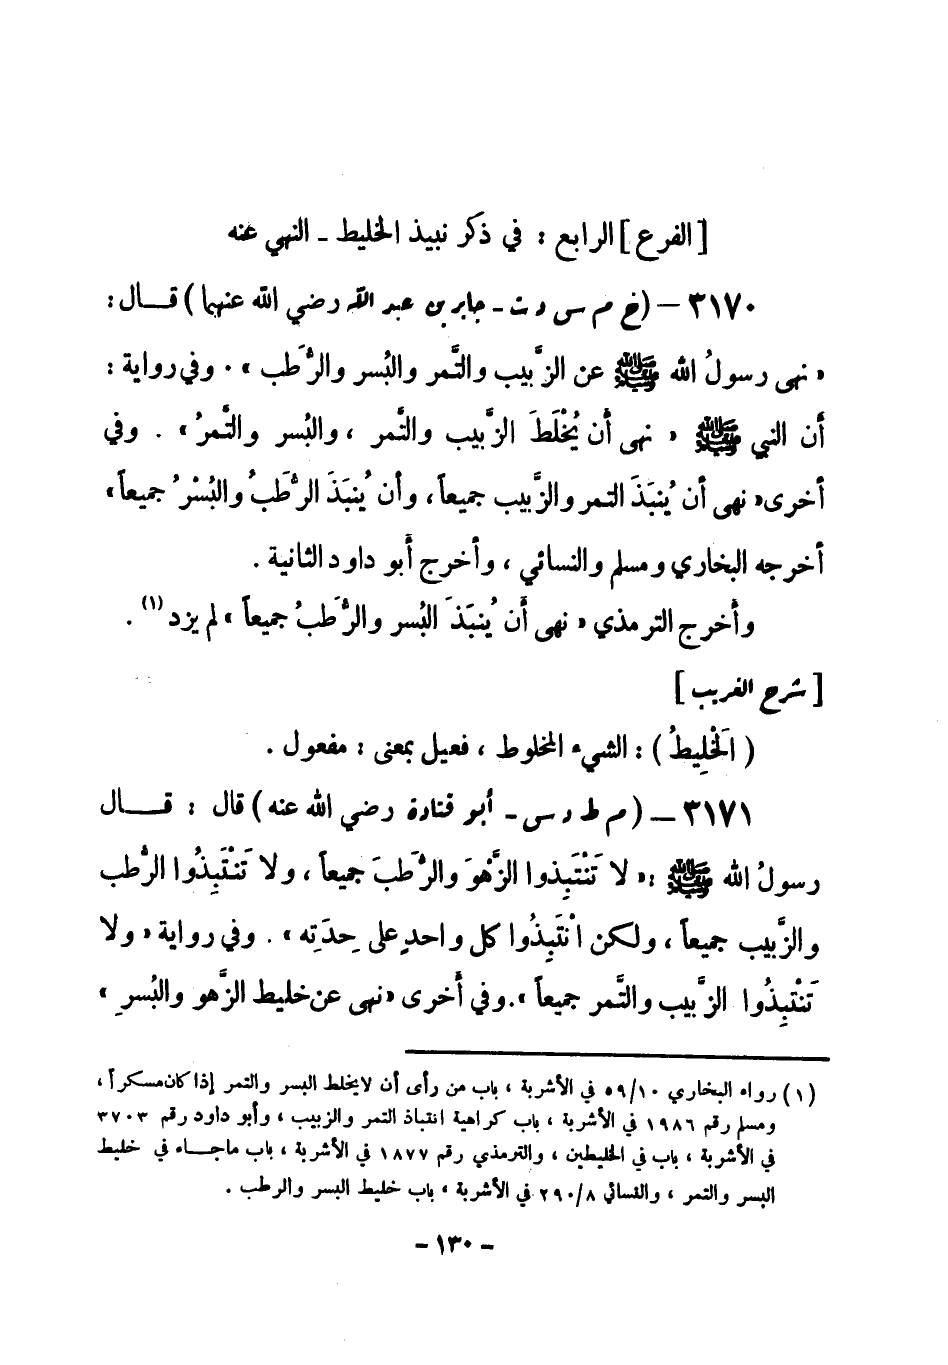 [ الفرع ] الرابع : في ذكر نبيذ الخليط ـ النهي عنه
٣١٧٠ – ( خ م س د ت ـ جابر بن عبد الله رضي الله عنهما ) قـــال :
« نهى رسولُ الله ﷺ عن الزَّبيب والتَّمر والبُسر والرُّطَب » . وفي رواية :
أن النبي ﷺ « نهى أن يُخْلَطَ الزَّبيب والتَّمر ، والبُسر والتَّمرُ » . وفي
أخرى « نهى أن يُنبَذَ التمر والزَّبيب جميعاً ، وأن يُنبَذَ الرُّطَبُ والبُسْرُ جميعاً »
أخرجه البخاري ومسلم والنسائي ، وأخرج أبو داود الثانية .
وأخرج الترمذي « نهى أن يُنبَذَ البُسر والرُّطَبُ جميعاً » لم يزد (١) .
[ شرح الغريب ]
( الخَلِيطُ ) : الشيء المخلوط ، فعيل بمعنى : مفعول .
٣١٧١ – ( م ط د س ـ أبو قتادة رضي الله عنه ) قال : قـــال
رسولُ الله ﷺ : « لا تَنْتَبِذوا الزَّهْوَ والرُّطَبَ جميعاً ، ولا تَنْتَبِذُوا الرُّطب
والزَّبيب جميعاً ، ولكن انْتَبِذُوا كل واحدٍ على حِدَتِه » . وفي رواية « ولا
تَنْتَبِذُوا الزَّبيب والتَّمر جميعاً » . وفي أخرى « نهى عن خليط الزَّهو والبُسرِ »
(١) رواه البخاري ١٠/٥٩ في الأشربة ، باب من رأى أن لا يخلط البسر والتمر إذا كان مسكراً ،
ومسلم رقم ١٩٨٦ في الأشربة ، باب كراهية انتباذ التمر والزبيب ، وأبو داود رقم ٣٧٠٣
في الأشربة ، باب في الخليطين ، والترمذي رقم ١٨٧٧ في الأشربة ، باب ماجـــاء في خليط
البسر والتمر ، والنسائي ٨/٢٩٠ في الأشربة ، باب خليط البسر والرطب .
– ١٣٠ –